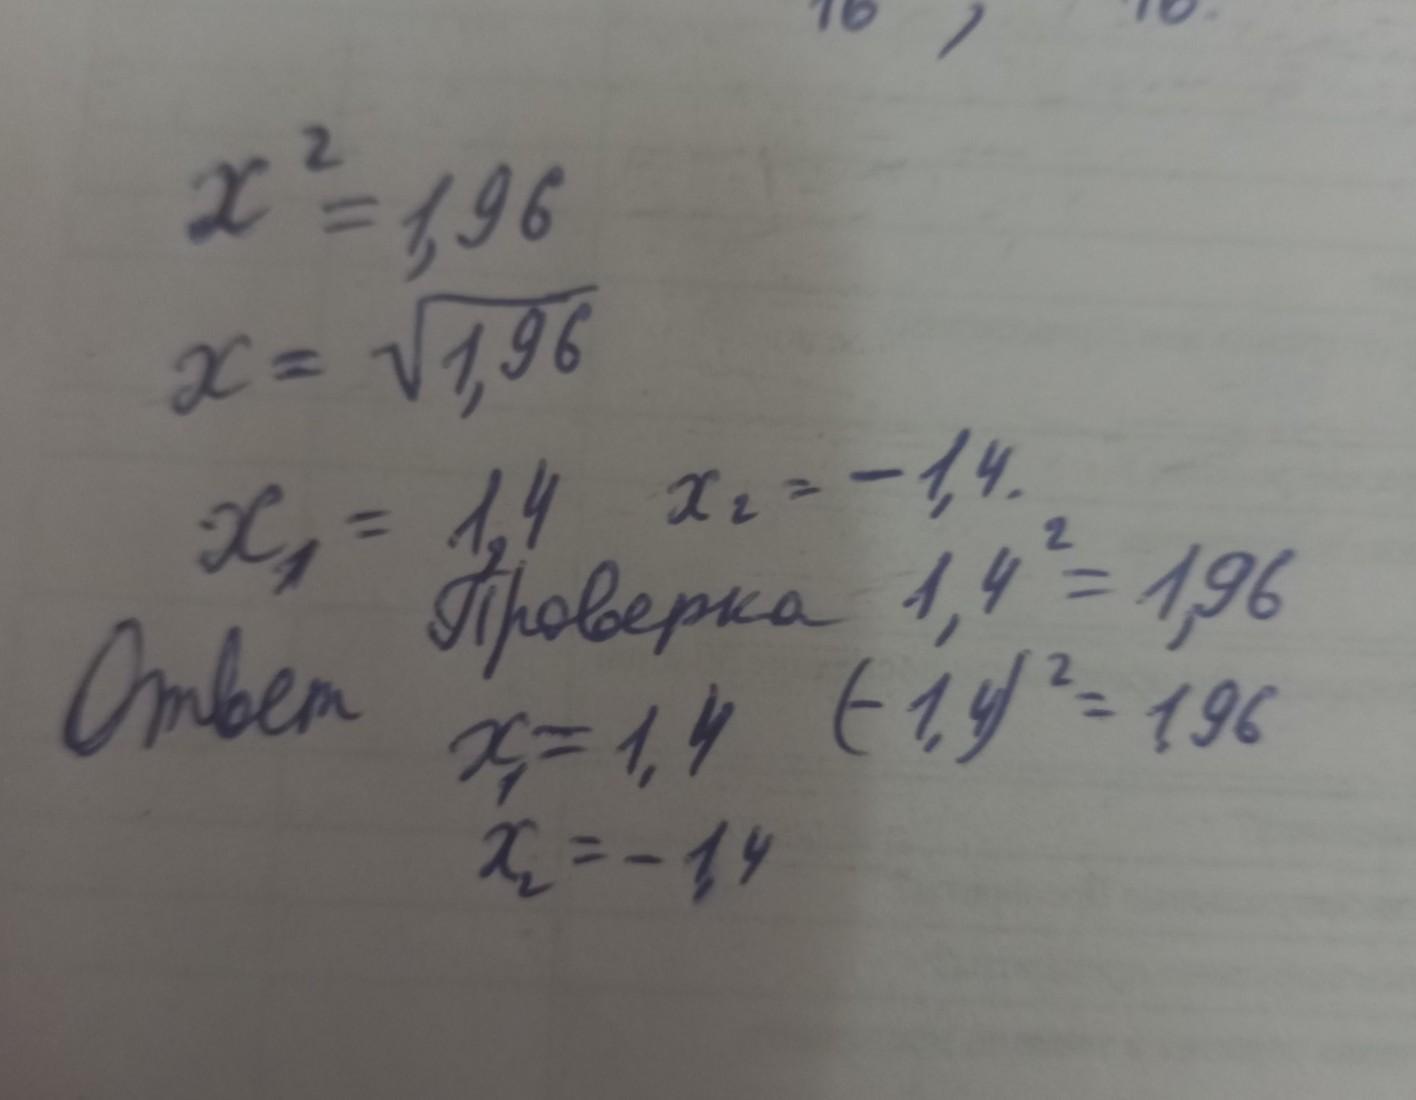 16 , 16.
x² = 1,96
x = √1,96
x₁ = 1,4 x₂ = -1,4.
Проверка 1,4² = 1,96
Ответ (-1,4)² = 1,96
x₁ = 1,4
x₂ = -1,4